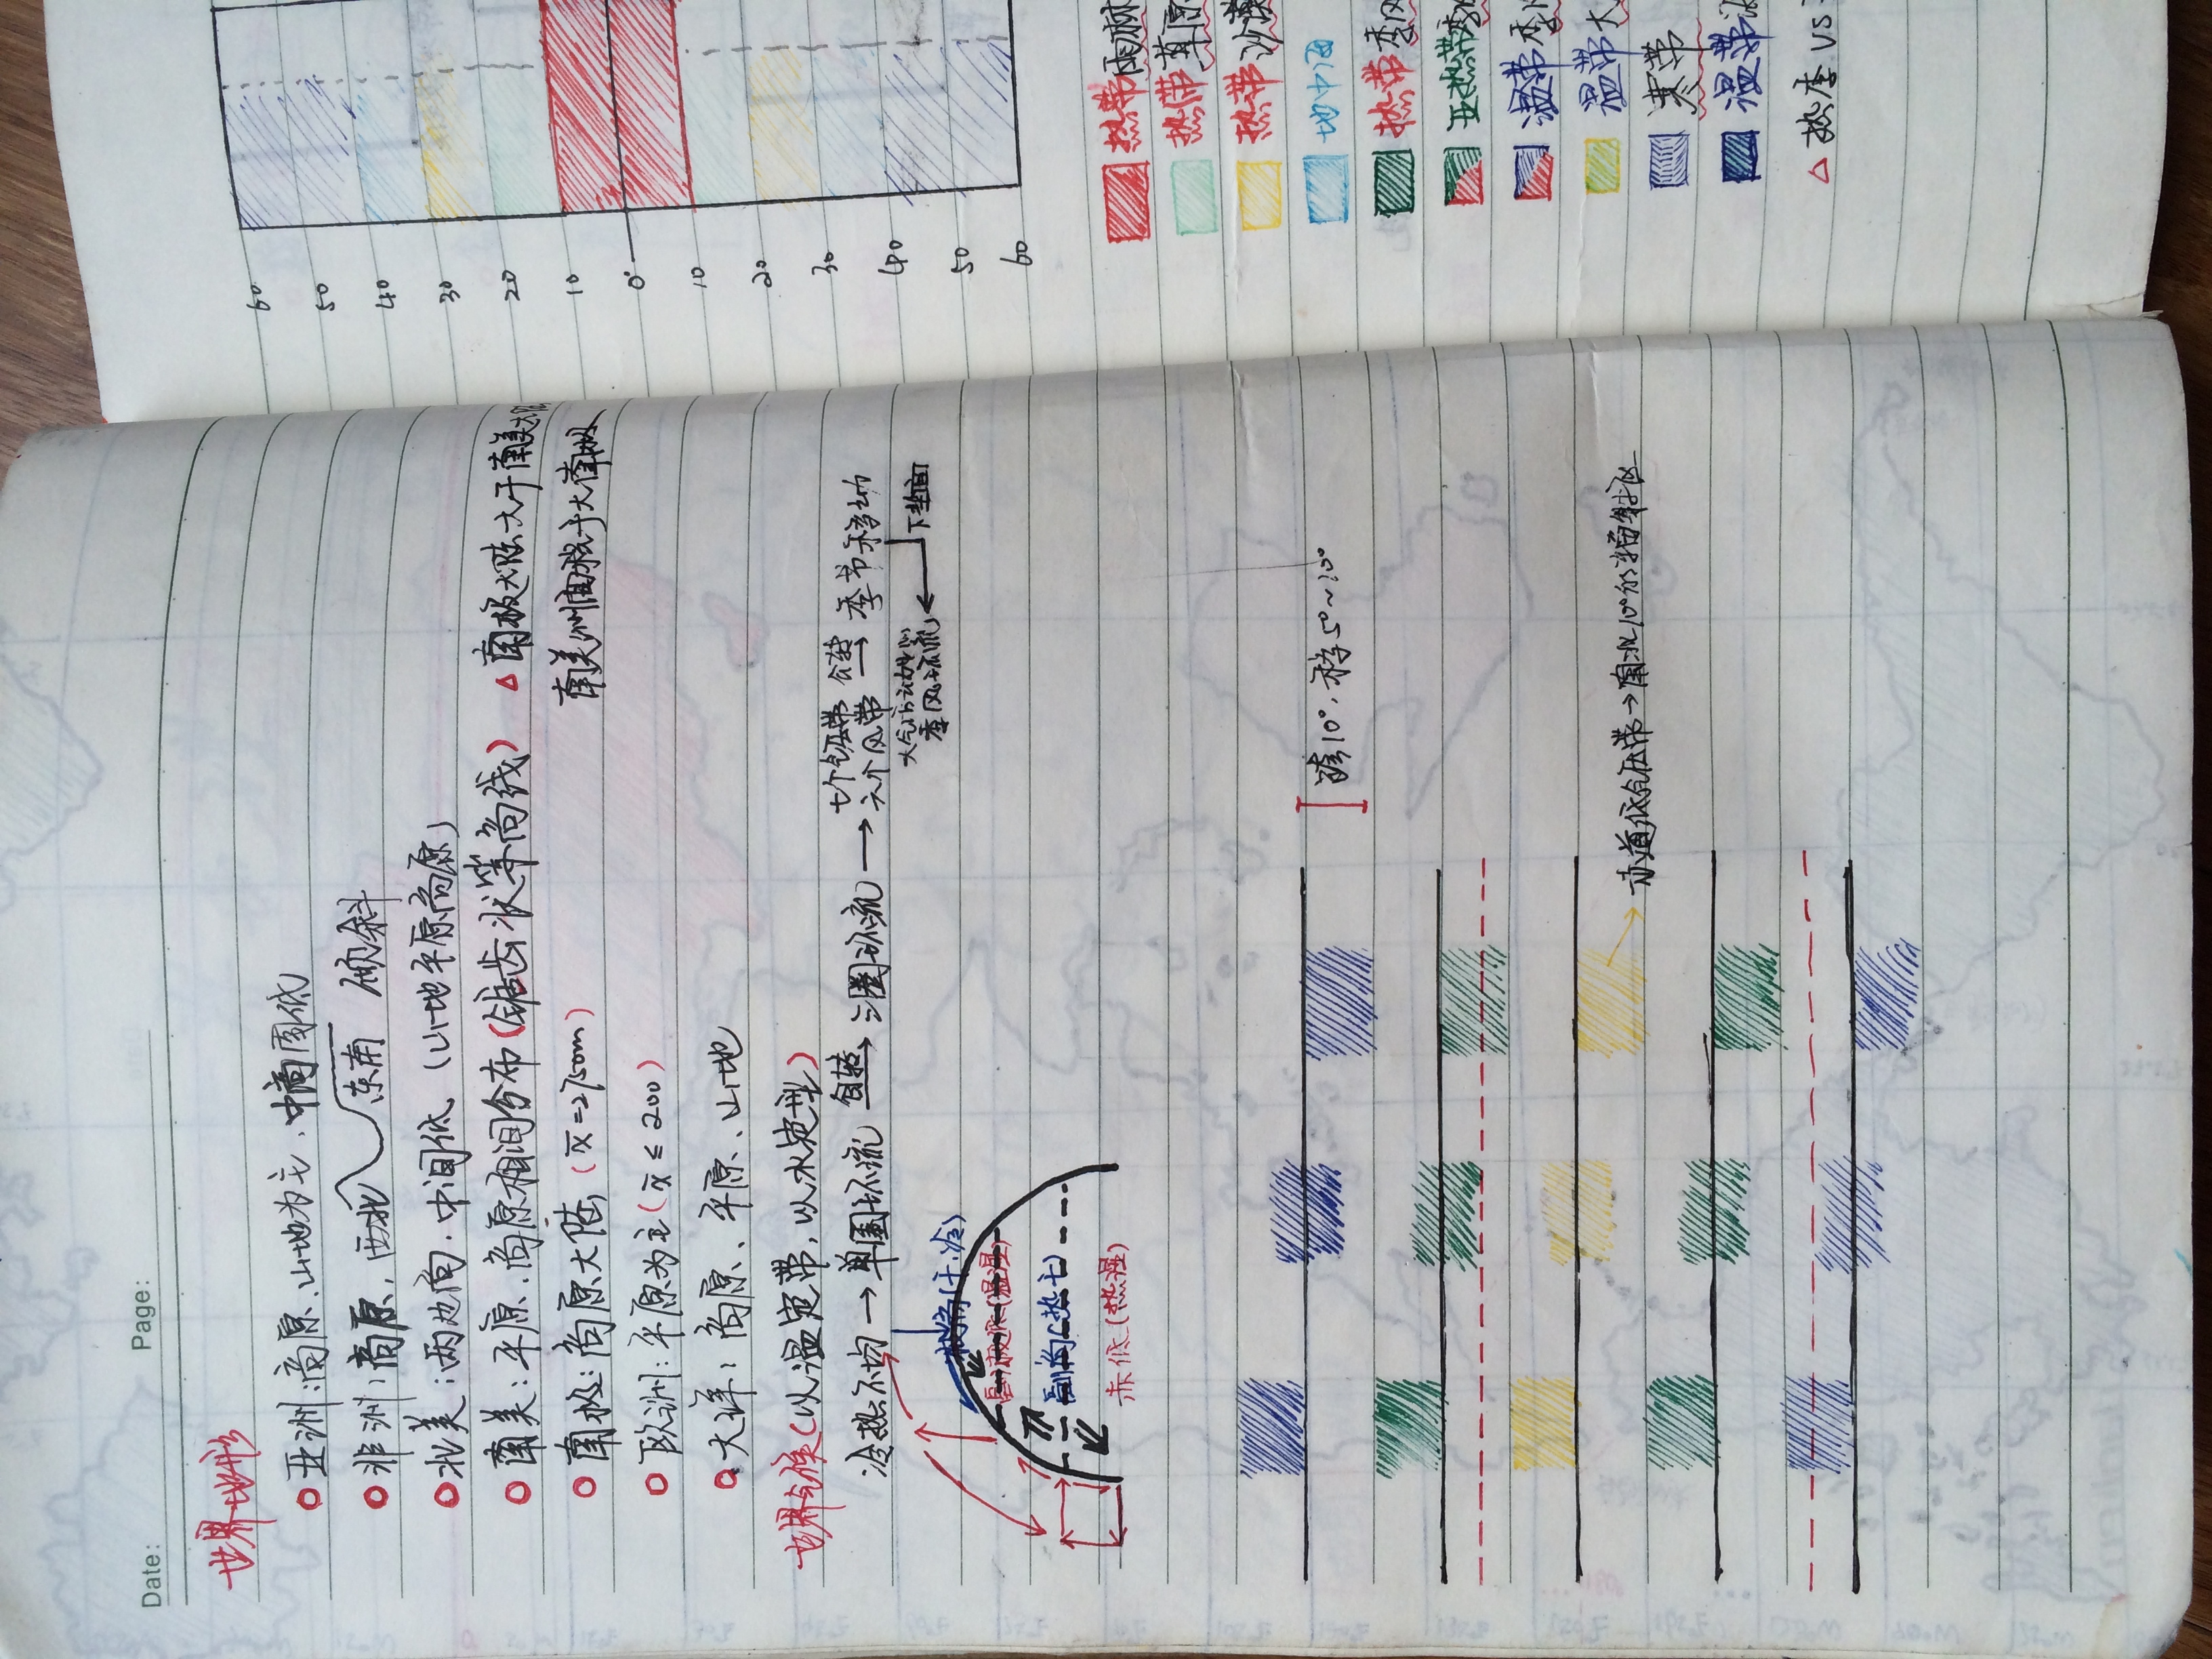 Date: Page:
世界地形
亚洲:高原、山地为主,中高周低
非洲:高原,西北 东南 倾斜
北美:两边高,中间低(山地平原高原)
南美:平原、高原相间分布(锯齿状等高线) △南极大陆大于南美大陆
南极:高原大陆(x̄=2350m) 南美洲面积于大南极
欧洲:平原为主(x̄≤200)
大洋:高原、平原、山地
世界气候(以温定带,以水定型)
冷热不均→单圈环流 自转→三圈环流→七个气压带 六个风带 公转→季节移动
大气活动中心
季风环流 下垫面
极高(干、冷)
副极低(温湿)
副高(热干)
赤低(热湿)
跨10°,移5°~10°
赤道低气压带→南北10°的辐射区
60
50
40
30
20
10
0°
10
20
30
40
50
60
热带雨林
热带草原
热带沙漠
地中海
热带季风
亚热带季
温带季
温带大
寒带
温带
△热季VS